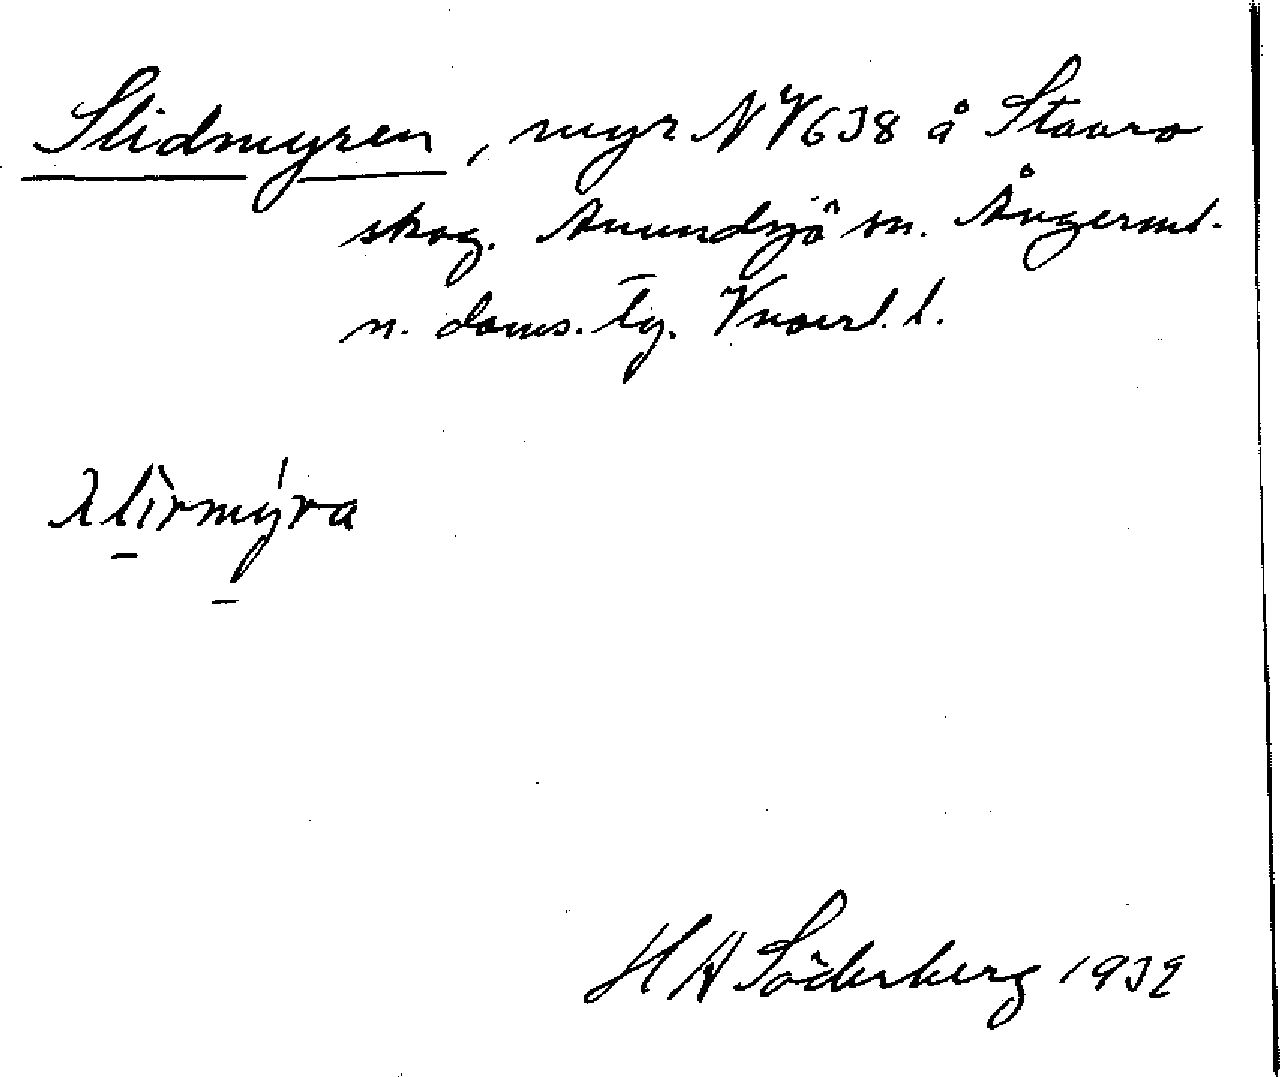 Slidmyren, myr NV 638 å Stavro
skog. Anundsjö sn. Ångerml.
n. doms. lg. Vnorrl. l.
slirmýra
H A Söderberg 1932